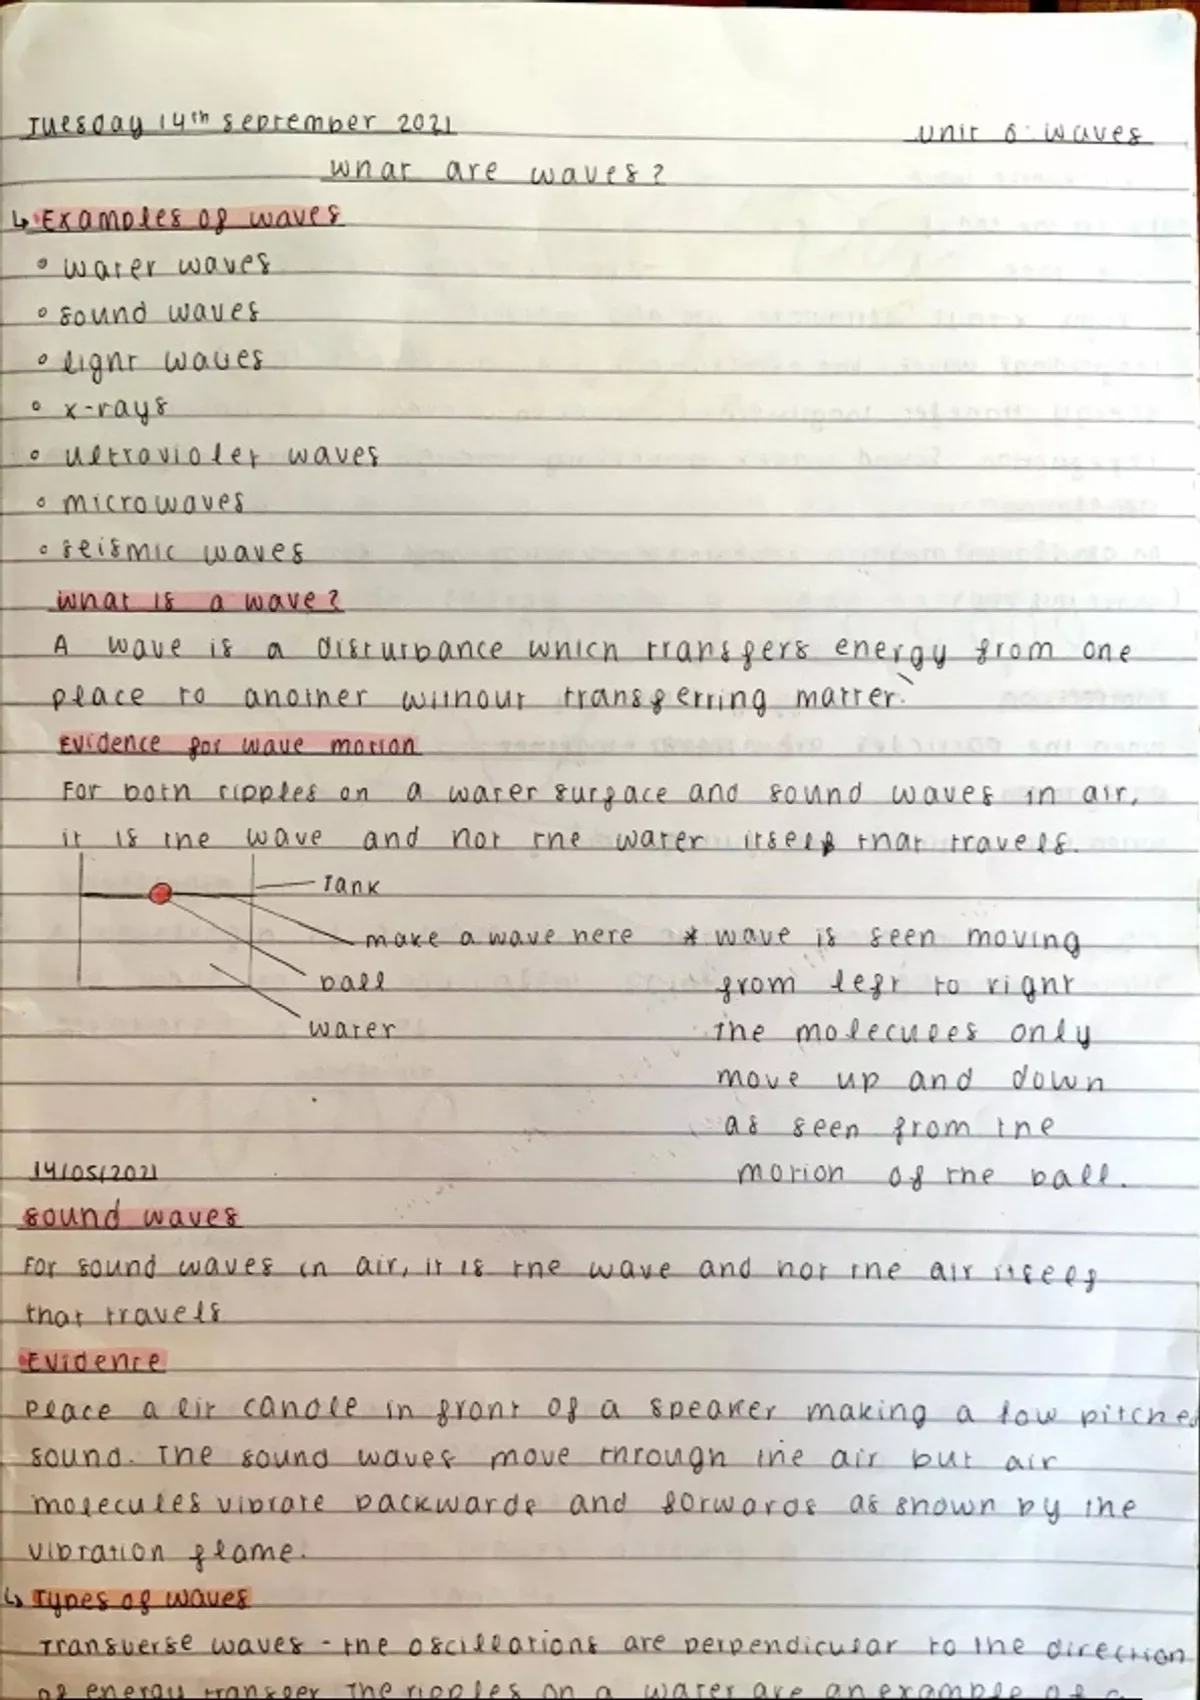 Tuesday 14th September 2021
Unit 6: Waves
What are waves?
↳ Examples of waves
° water waves
° sound waves
° light waves
° x-rays
° ultraviolet waves
° microwaves
° seismic waves
What is a wave?
A wave is a disturbance which transfers energy from one
place to another without transferring matter.
Evidence for wave motion
For both ripples on a water surface and sound waves in air,
it is the wave and not the water itself that travels.
Tank
make a wave here
ball
water
* wave is seen moving
from left to right
the molecules only
move up and down
as seen from the
motion of the ball.
14/05/2021
sound waves
For sound waves in air, it is the wave and not the air itself
that travels
Evidence
Place a lit candle in front of a speaker making a low pitched
sound. The sound waves move through the air but air
molecules vibrate backwards and forwards as shown by the
vibration flame.
↳ Types of waves
Transverse waves - the oscillations are perpendicular to the direction
of energy transfer The ripples on a water are an example of a